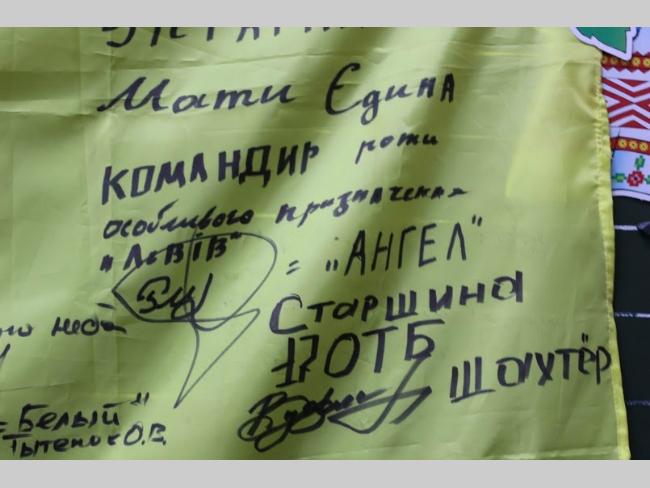 Мати Єдина
КОМАНДИР роти
особливого призначення
"Львів" = „АНГЕЛ"
Старшина
17 ОТБ
Шахтёр
неба
= Белый"
О.В.